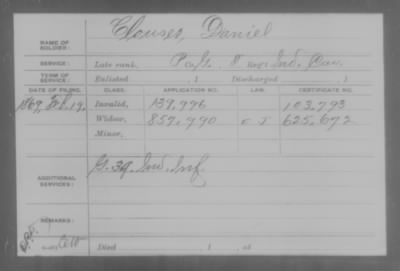 NAME OF SOLDIER: Clouser, Daniel
SERVICE: Late rank, P Co. G. 8 Reg't Ind. Cav.
TERM OF SERVICE: Enlisted , 1 Discharged , 1
DATE OF FILING. CLASS. APPLICATION NO. LAW. CERTIFICATE NO.
1869, Feb. 19, Invalid, 139,996 103,793
Widow, 857,790 625,672
Minor,
ADDITIONAL SERVICES: G. 39. Ind. Inf.
REMARKS:
Died , 1 , at